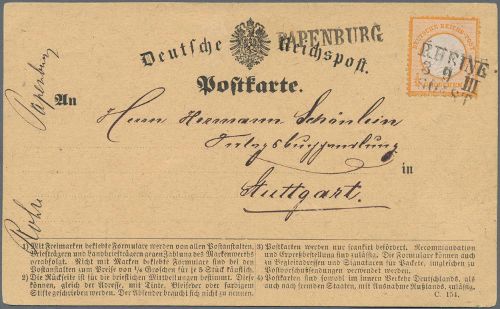 PAPENBURG
Deutsche Reichspost.
Postkarte.
RHEINE
9 III
SOEST
An
Herrn Hermann Schönlein
in
Stuttgart.
Papenburg
1) Mit Freimarken beklebte Formulare werden von allen Postanstalten,
Briefträgern und Landbriefträgern gegen Zahlung des Markenwerths
verabfolgt. Nicht mit Marken beklebte Formulare sind bei den
Postanstalten zum Preise von ¼ Groschen für je 5 Stück käuflich.
2) Die Rückseite ist für die brieflichen Mittheilungen bestimmt. Diese
können, gleich der Adresse, mit Tinte, Bleifeder oder farbigem
Stifte geschrieben werden. Der Absender braucht sich nicht zu nennen.
3) Postkarten werden nur frankirt befördert. Recommandation
und Expreßbestellung sind zulässig. Die Formulare können auch
zu Begleitadressen und Signaturen für Packete, imgleichen zu
Postvorschußsendungen verwendet werden.
4) Postkarten sind sowohl im innern Verkehr Deutschlands, als
auch nach fremden Staaten, mit Ausnahme Rußlands, zulässig.
C. 154.